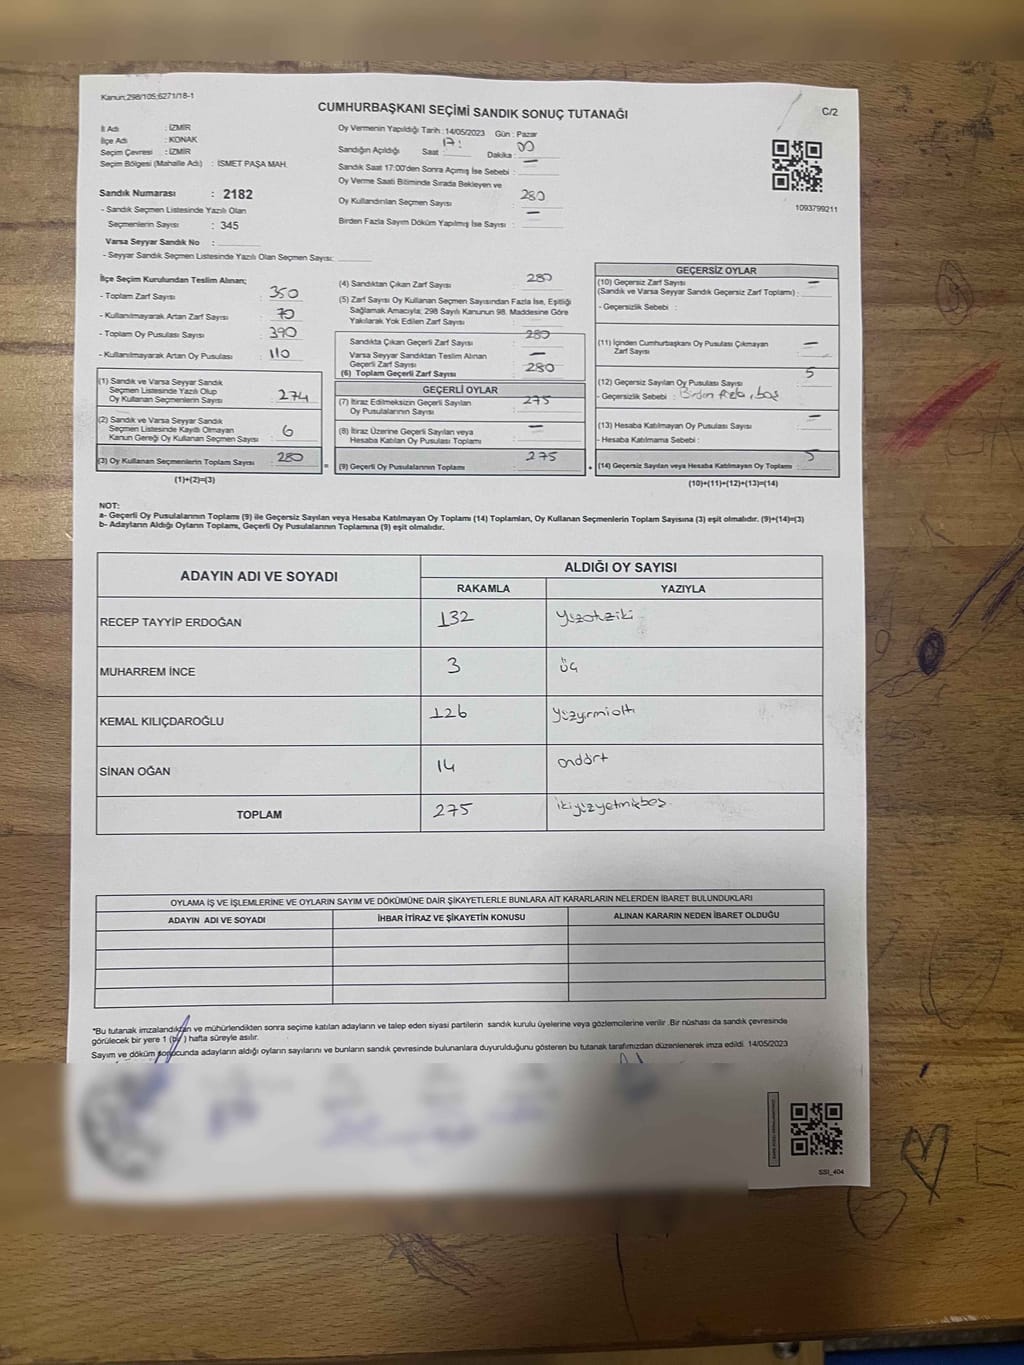 Kanun:298/105;6271/18-1
CUMHURBAŞKANI SEÇİMİ SANDIK SONUÇ TUTANAĞI
C/2
İl Adı : İZMİR
İlçe Adı : KONAK
Seçim Çevresi : İZMİR
Seçim Bölgesi (Mahalle Adı) : İSMET PAŞA MAH.
Sandık Numarası : 2182
- Sandık Seçmen Listesinde Yazılı Olan
Seçmenlerin Sayısı : 345
Varsa Seyyar Sandık No :
- Seyyar Sandık Seçmen Listesinde Yazılı Olan Seçmen Sayısı:
Oy Vermenin Yapıldığı Tarih : 14/05/2023 Gün : Pazar
Sandığın Açıldığı Saat : 17: Dakika : 00
Sandık Saat 17:00'den Sonra Açımış İse Sebebi : —
Oy Verme Saati Bitiminde Sırada Bekleyen ve
Oy Kullandırılan Seçmen Sayısı : 280
Birden Fazla Sayım Döküm Yapılmış İse Sayısı : —
1093799211
İlçe Seçim Kurulundan Teslim Alınan;
- Toplam Zarf Sayısı : 350
- Kullanılmayarak Artan Zarf Sayısı : 70
- Toplam Oy Pusulası Sayısı : 390
- Kullanılmayarak Artan Oy Pusulası : 110
(1) Sandık ve Varsa Seyyar Sandık
Seçmen Listesinde Yazılı Olup
Oy Kullanan Seçmenlerin Sayısı : 274
(2) Sandık ve Varsa Seyyar Sandık
Seçmen Listesinde Kayıtlı Olmayan
Kanun Gereği Oy Kullanan Seçmen Sayısı : 6
(3) Oy Kullanan Seçmenlerin Toplam Sayısı : 280
(1)+(2)=(3)
(4) Sandıktan Çıkan Zarf Sayısı : 280
(5) Zarf Sayısı Oy Kullanan Seçmen Sayısından Fazla İse, Eşitliği
Sağlamak Amacıyla; 298 Sayılı Kanunun 98. Maddesine Göre
Yakılarak Yok Edilen Zarf Sayısı :
Sandıkta Çıkan Geçerli Zarf Sayısı : 280
Varsa Seyyar Sandıktan Teslim Alınan
Geçerli Zarf Sayısı : —
(6) Toplam Geçerli Zarf Sayısı : 280
GEÇERLİ OYLAR
(7) İtiraz Edilmeksizin Geçerli Sayılan : 275
Oy Pusulalarının Sayısı
(8) İtiraz Üzerine Geçerli Sayılan veya : —
Hesaba Katılan Oy Pusulası Toplamı
(9) Geçerli Oy Pusulalarının Toplamı : 275
GEÇERSİZ OYLAR
(10) Geçersiz Zarf Sayısı
(Sandık ve Varsa Seyyar Sandık Geçersiz Zarf Toplamı) : —
- Geçersizlik Sebebi :
(11) İçinden Cumhurbaşkanı Oy Pusulası Çıkmayan : —
Zarf Sayısı
(12) Geçersiz Sayılan Oy Pusulası Sayısı : 5
- Geçersizlik Sebebi : Birden fazla, boş
(13) Hesaba Katılmayan Oy Pusulası Sayısı : —
- Hesaba Katılmama Sebebi :
(14) Geçersiz Sayılan veya Hesaba Katılmayan Oy Toplamı : 5
(10)+(11)+(12)+(13)=(14)
NOT:
a- Geçerli Oy Pusulalarının Toplamı (9) ile Geçersiz Sayılan veya Hesaba Katılmayan Oy Toplamı (14) Toplamları, Oy Kullanan Seçmenlerin Toplam Sayısına (3) eşit olmalıdır. (9)+(14)=(3)
b- Adayların Aldığı Oyların Toplamı, Geçerli Oy Pusulalarının Toplamına (9) eşit olmalıdır.
ADAYIN ADI VE SOYADI
ALDIĞI OY SAYISI
RAKAMLA YAZIYLA
RECEP TAYYİP ERDOĞAN 132 yüzotuziki
MUHARREM İNCE 3 üç
KEMAL KILIÇDAROĞLU 126 yüzyirmialtı
SİNAN OĞAN 14 ondört
TOPLAM 275 ikiyüzyetmişbeş
OYLAMA İŞ VE İŞLEMLERİNE VE OYLARIN SAYIM VE DÖKÜMÜNE DAİR ŞİKAYETLERLE BUNLARA AİT KARARLARIN NELERDEN İBARET BULUNDUKLARI
ADAYIN ADI VE SOYADI İHBAR İTİRAZ VE ŞİKAYETİN KONUSU ALINAN KARARIN NEDEN İBARET OLDUĞU
*Bu tutanak imzalandıktan ve mühürlendikten sonra seçime katılan adayların ve talep eden siyasi partilerin sandık kurulu üyelerine veya gözlemcilerine verilir. Bir nüshası da sandık çevresinde
görülecek bir yere 1 (bir) hafta süreyle asılır.
Sayım ve döküm sonucunda adayların aldığı oyların sayılarını ve bunların sandık çevresinde bulunanlara duyurulduğunu gösteren bu tutanak tarafımızdan düzenlenerek imza edildi. 14/05/2023
SSI_404